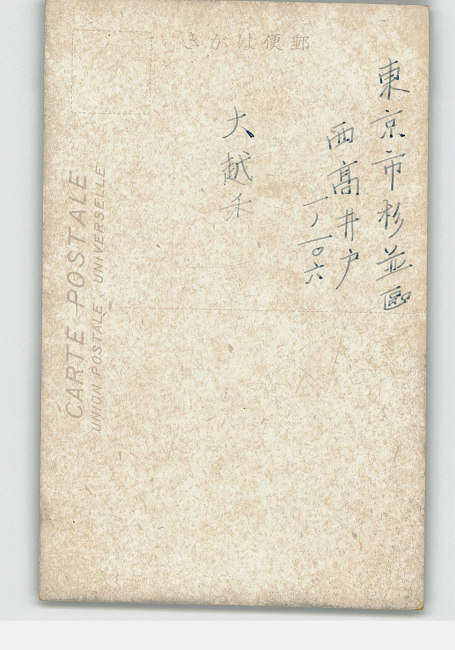 郵便はがき
東京市杉並區
西高井戸
一ノ一〇六
大越禾
CARTE POSTALE
UNION POSTALE UNIVERSELLE